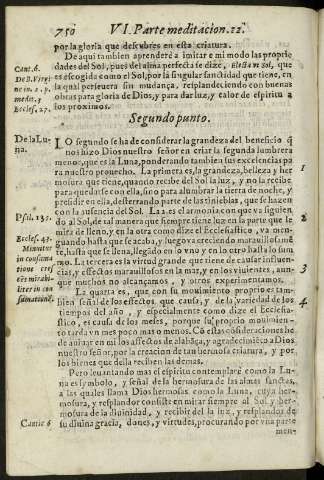 750 VI. Parte meditacion. 22.
por la gloria que descubres en esta criatura.
De aqui tambien aprenderé a imitar e mi modo las proprie
dades del Sol, pues del alma perfecta se dize, Electa vt sol, que
es escogida como el Sol, por la singular sanctidad que tiene, en
la qual persevera sin mudança, resplandeciendo con buenas
obras para gloria de Dios, y para dar luz, y calor de espiritu a
los proximos.
Cant. 6.
De B. Virgi
ne in. 2. p.
medit. 3
Eccles. 27.
Segundo punto.
De la Lu-
na.
LO segundo se ha de considerar la grandeza del beneficio q̃
nos hizo Dios nuestro señor en criar la segunda lumbrera
menor, que es la Luna, ponderando tambien sus excelencias pa
ra nuestro prouecho. La primera es, la grandeza, belleza y her
mosura que tiene, quando recibe del Sol la luz, y no la recibe
para quedarse con ella, sino para alumbrar la tierra de noche, y
presidir en ella, desterrando parte de las tinieblas, que se hazen
con la ausencia del Sol. La 2. es el armonia con que va siguien
do al Sol, de tal manera que siempre tiene luz en la parte que le
mira de lleno, y en la otra como dize el Ecclesiastico, va men-
guando hasta que se acaba, y luego va creciendo marauillosamẽ
te, hasta que se llena, llegado en lo vno y en lo otro hasta lo sumo
La tercera es la virtud grande que tiene de causar influen-
cias, y effectos marauillosos en la mar, y en los viuientes, aun-
que muchos no alcançamos, y otros experimentamos.
La quarta es, que con su mouimiẽto proprio es tam-
bien señal de los effectos que causa, y de la variedad de los
tiempos del año, y especialmente como dize el Ecclesia-
stico, es causa de los meses, porque su proprio mouimien-
to tarda vn mes poco mas o menos. Cõ estas consideraciones he
de auiuar en mi los affectos de alabãça, y agradecimiẽto a Dios
nuestro señor, por la creacion de tan hermosa criatura, y por
los bienes que della reciben las demas.
Pero leuantando mas el espiritu contemplaré como la Lu-
na es symbolo, y señal de la hermosura de las almas sanctas,
a las quales llama Dios hermosas como la Luna, cuya her-
mosura, y resplandor consiste en mirar siempre al Sol y her-
mosura de la diuinidad, y recibir de la luz, y resplandor de
su diuina gracia, dones, y virtudes, procurando por vna parte
men-
1
Psal. 135.
2
Eccles. 43.
Minuitur
in consuma
tione cres
cẽs mirabi-
liter in con
sumatione.
3
4
Cantic. 6